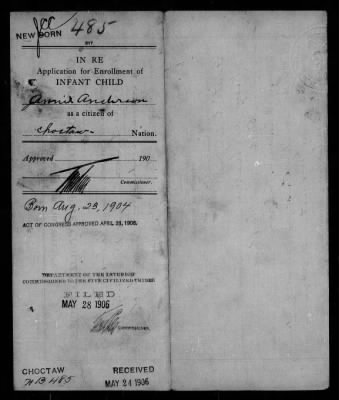 Jcc
NEW BORN 485
IN RE
Application for Enrollment of
INFANT CHILD
Annie Anderson
as a citizen of
Choctaw Nation.
Approved 190
Commissioner.
Born Aug. 23, 1904
ACT OF CONGRESS APPROVED APRIL 26, 1906.
DEPARTMENT OF THE INTERIOR
COMMISSIONER TO THE FIVE CIVILIZED TRIBES
FILED
MAY 28 1906
COMMISSIONER.
CHOCTAW
NB 485
RECEIVED
MAY 24 1906